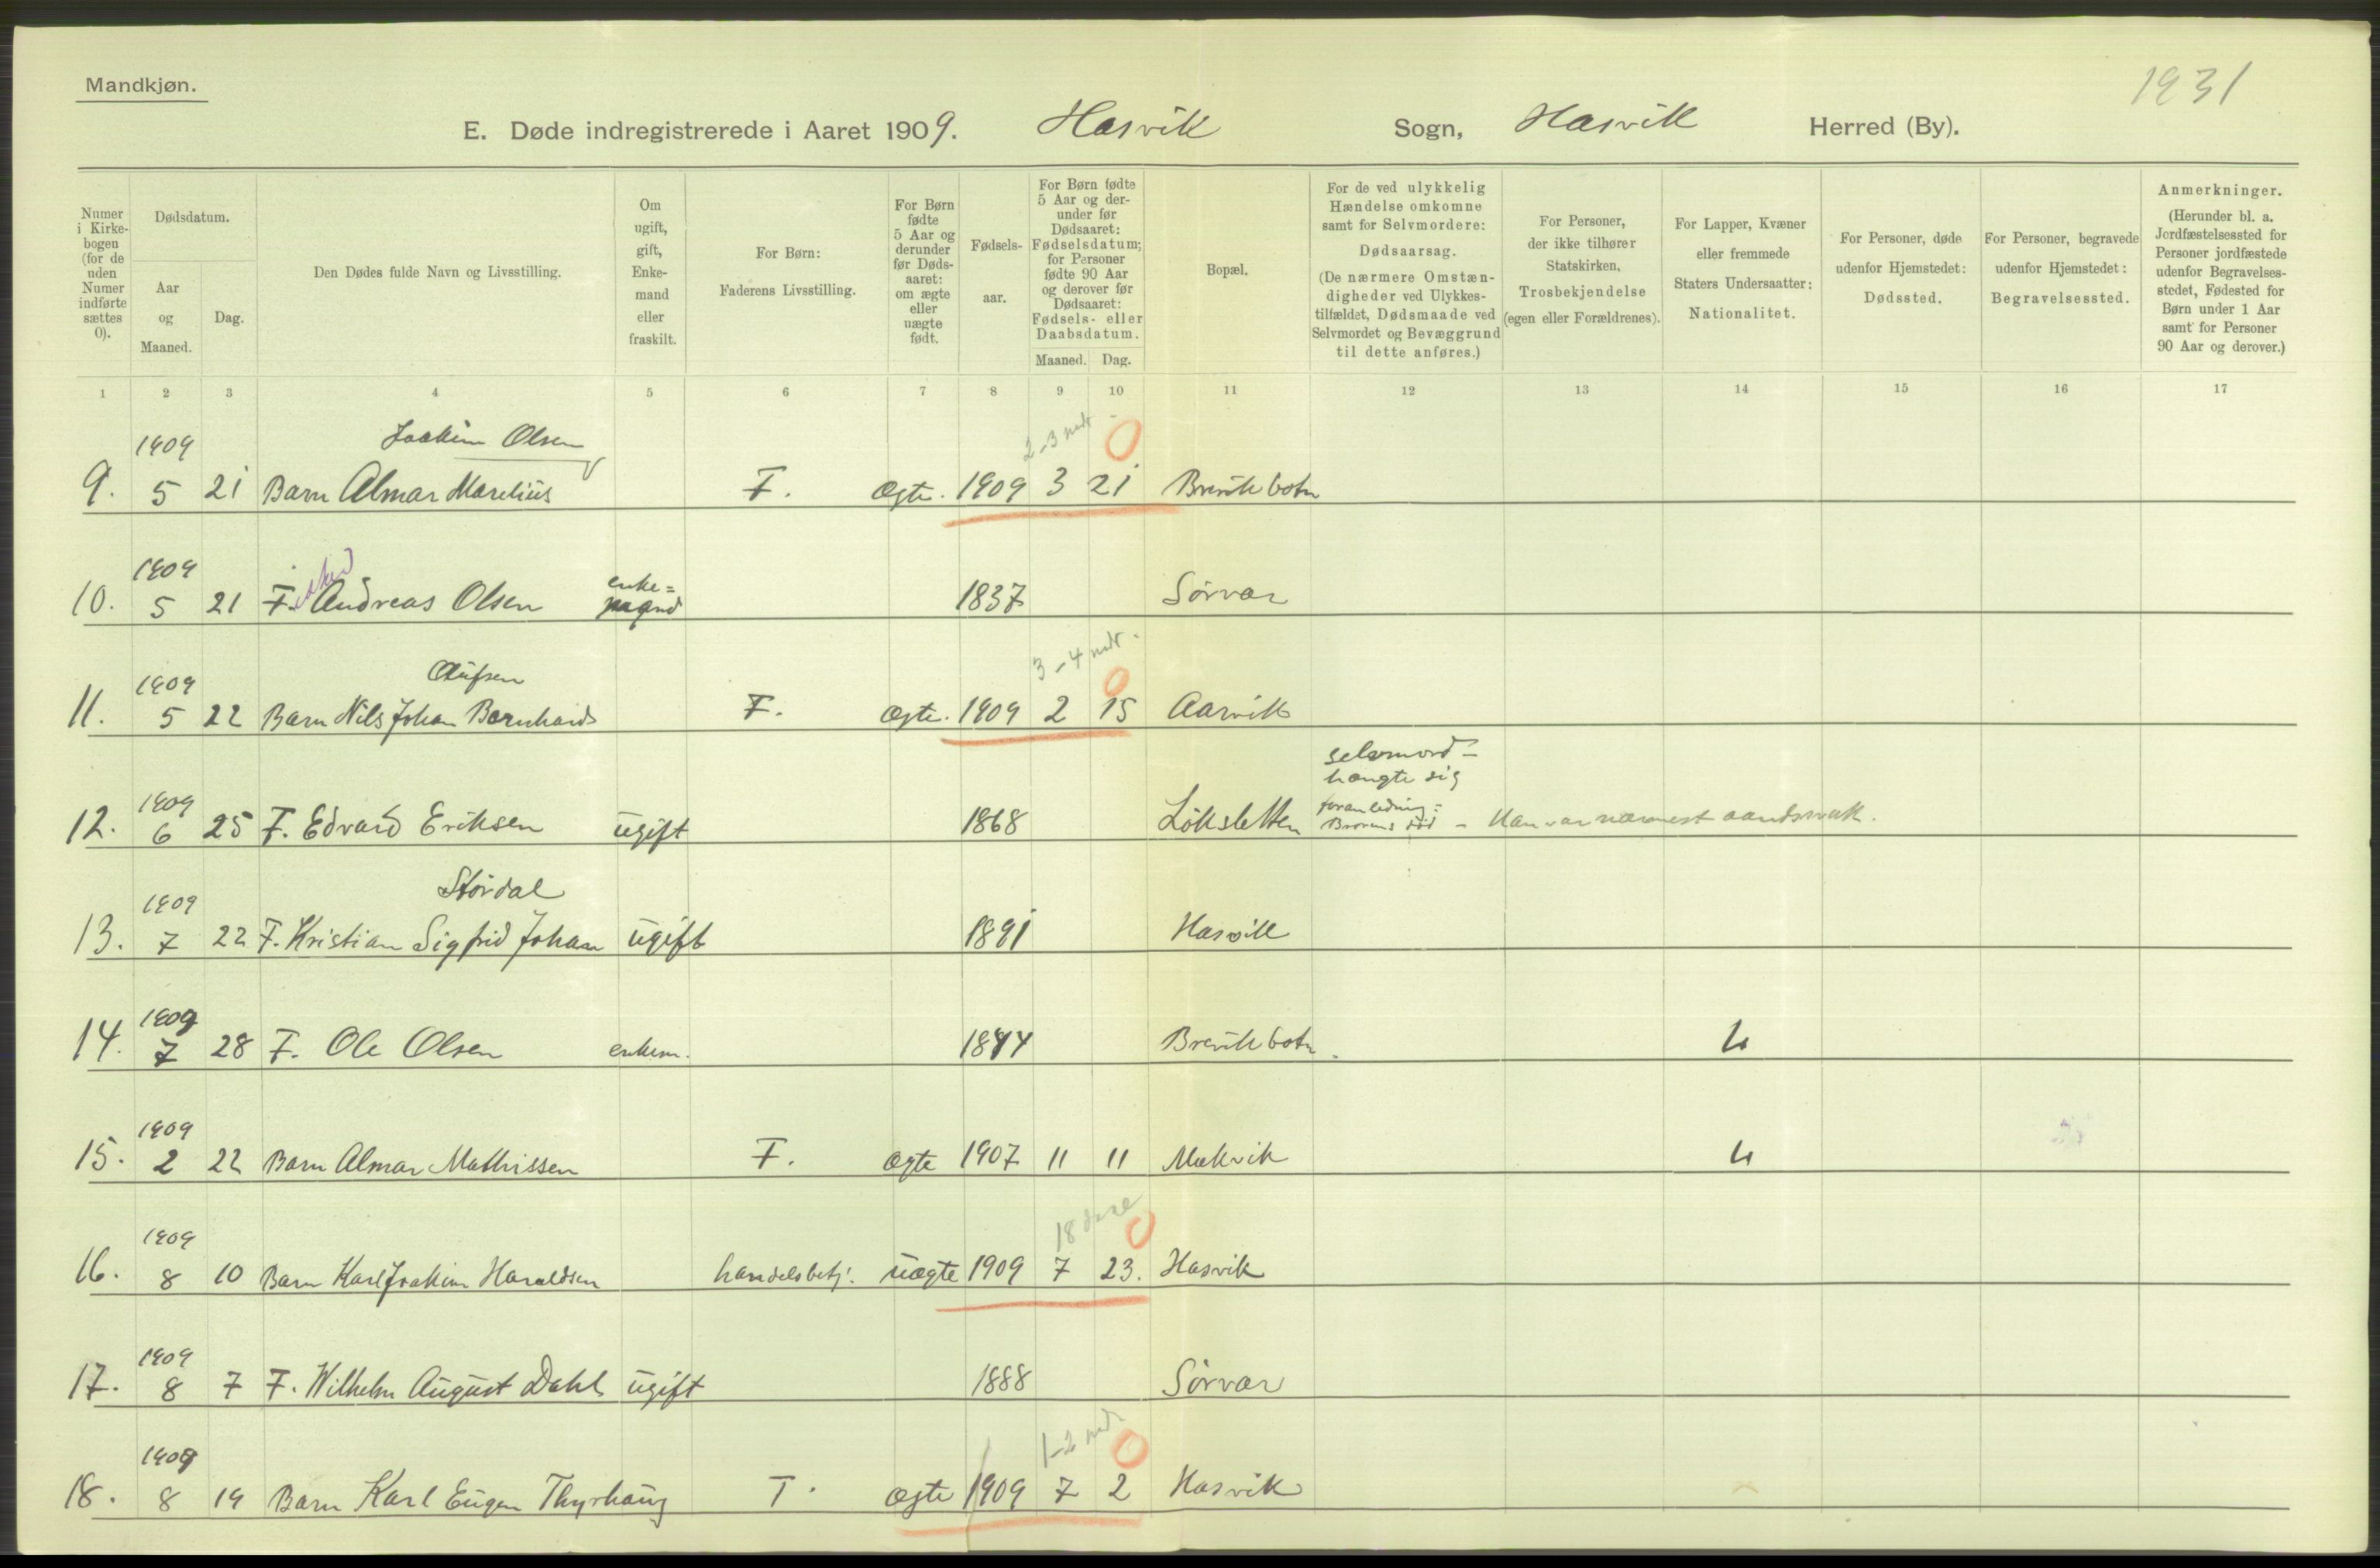 Mandkjøn.
1931
E. Døde indregistrerede i Aaret 1909. Hasvik Sogn, Hasvik Herred (By).
Numer i Kirke-bogen (for de uden Numer indførte sættes 0).
Dødsdatum.
Aar og Maaned.
Dag.
Den Dødes fulde Navn og Livsstilling.
Om ugift, gift, Enke-mand eller fraskilt.
For Børn: Faderens Livsstilling.
For Børn fødte 5 Aar og derunder før Døds-aaret: om ægte eller uægte født.
Fødsels-aar.
For Børn fødte 5 Aar og der-under før Dødsaaret: Fødselsdatum; for Personer fødte 90 Aar og derover før Dødsaaret: Fødsels- eller Daabsdatum.
Maaned. Dag.
Bopæl.
For de ved ulykkelig Hændelse omkomne samt for Selvmordere: Dødsaarsag. (De nærmere Omstæn-digheder ved Ulykkes-tilfældet, Dødsmaade ved Selvmordet og Bevæggrund til dette anføres.)
For Personer, der ikke tilhører Statskirken, Trosbekjendelse (egen eller Forældrenes).
For Lapper, Kvæner eller fremmede Staters Undersaatter: Nationalitet.
For Personer, døde udenfor Hjemstedet: Dødssted.
For Personer, begravede udenfor Hjemstedet: Begravelsessted.
Anmerkninger. (Herunder bl. a. Jordfæstelsessted for Personer jordfæstede udenfor Begravelses-stedet, Fødested for Børn under 1 Aar samt for Personer 90 Aar og derover.)
1 2 3 4 5 6 7 8 9 10 11 12 13 14 15 16 17
1909 Joakim Olsen 2-3 mdr
9. 5 21 Barn Almar Marelius F. Ægte. 1909 3 21 Brevikbotn
1909 enke=
10. 5 21 F. Andreas Olsen mand 1837 Sörvær
1909 Olufsen 3-4 mdr.
11. 5 22 Barn Nils Johan Bernhards F. Ægte. 1909 2 15 Aarvik
selvmord -
hængte sig
1909 foranledning:
12. 6 25 F. Edvard Eriksen ugift 1868 Löksletten Brorens död - Han var nærmest aandssvak.
1909 Stördal
13. 7 22 F. Kristian Sigfrid Johan ugift 1891 Hasvik
1909
14. 7 28 F. Ole Olsen enkem. 1844 Brevikbotn.
1909
15. 2 22 Barn Almar Mathissen F. Ægte 1907 11 11 Mækvik
1909 18 dage
16. 8 10 Barn Karl Joakim Haraldsen handelsbetj. uægte 1909 7 23. Hasvik
1909
17. 8 7 F. Wilhelm August Dahl ugift 1888 Sörvær
1909 1-2 mdr
18. 8 19 Barn Karl Eugen Thyrhaug T. Ægte 1909 7 2 Hasvik